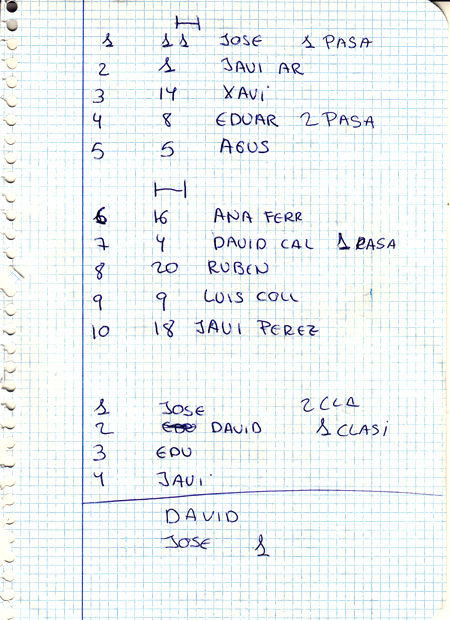 1 11 JOSE 1 PASA
2 1 JAVI AR
3 14 XAVI
4 8 EDUAR 2 PASA
5 5 AGUS
H
6 16 ANA FERR
7 4 DAVID CAL 1 PASA
8 20 RUBEN
9 9 LUIS COLL
10 18 JAVI PEREZ
1 JOSE 2 CLA
2 DAVID 1 CLASI
3 EDU
4 JAVI
DAVID
JOSE 1